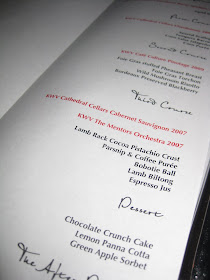 First Course
Second Course
Foie Gras stuffed Pheasant Breast
Foie Gras Torchon
Wild Mushroom Risotto
Bordeaux Preserved Blackberry
Third Course
KWV Cathedral Cellars Cabernet Sauvignon 2007
KWV The Mentors Orchestra 2007
Lamb Rack Cocoa Pistachio Crust
Parsnip & Coffee Purée
Bobotie Ball
Lamb Biltong
Espresso Jus
Dessert
Chocolate Crunch Cake
Lemon Panna Cotta
Green Apple Sorbet
The After